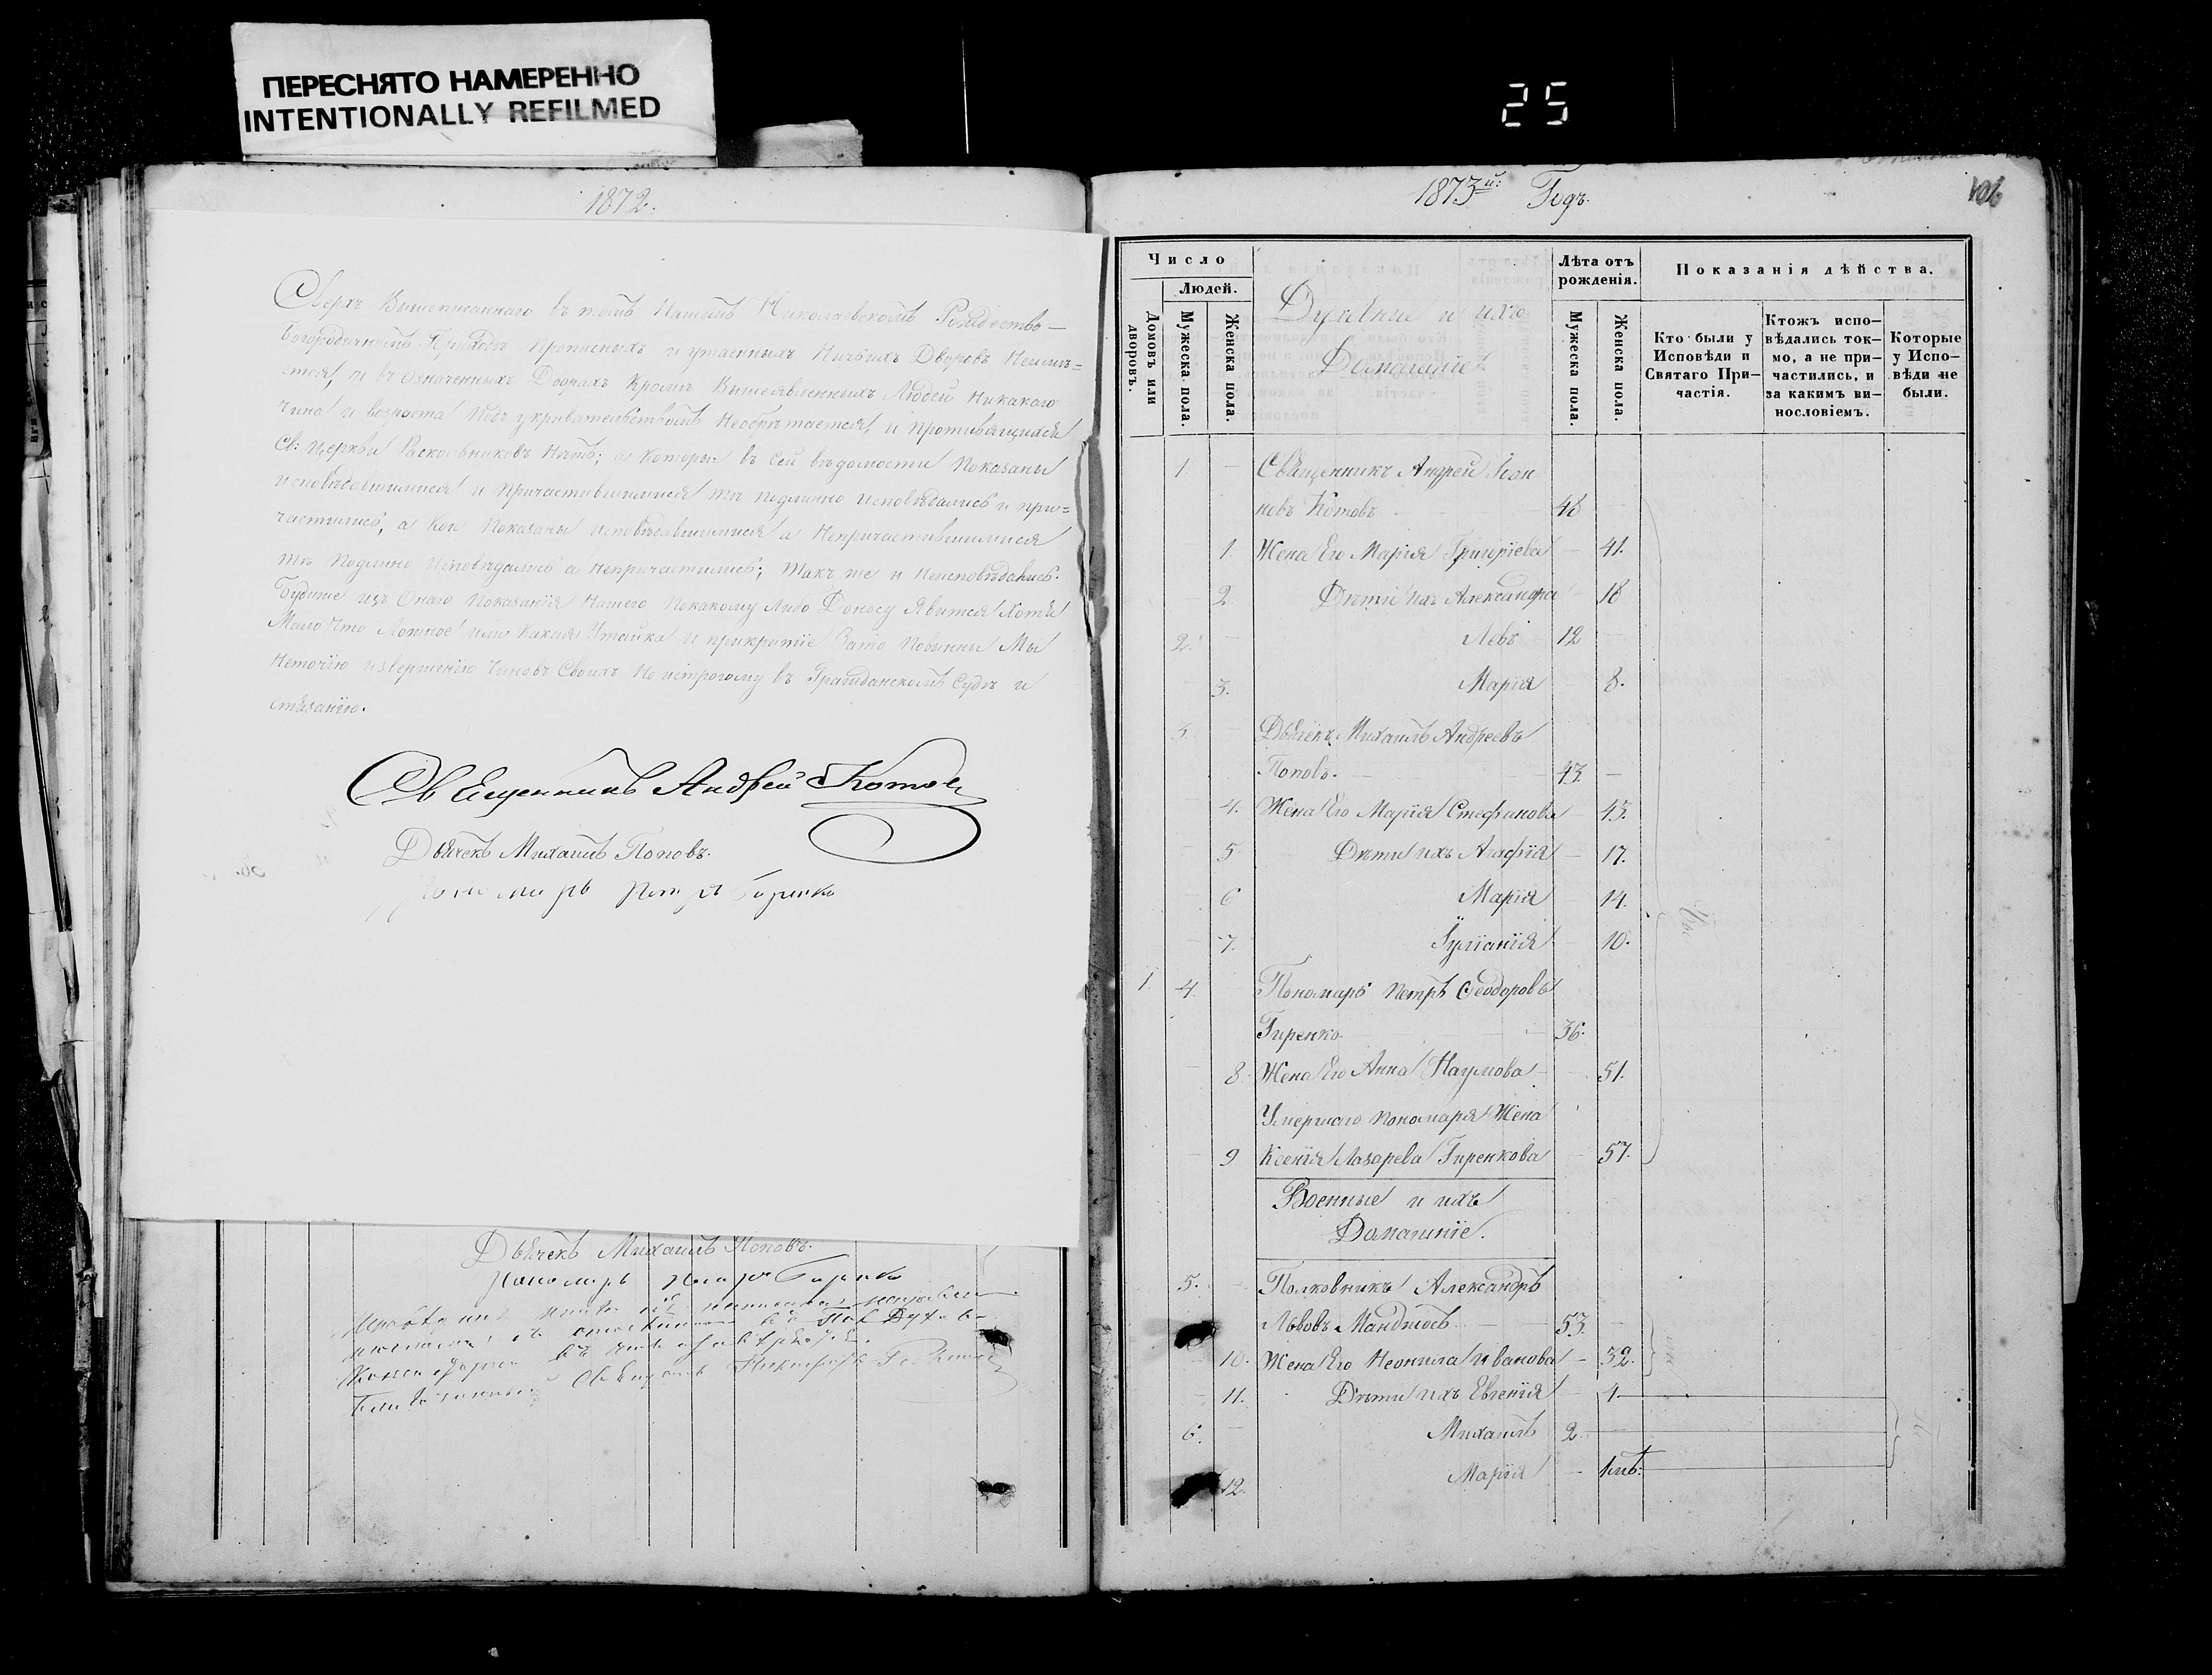 ПЕРЕСНЯТО НАМЕРЕННО
INTENTIONALLY REFILMED
25
1872.
Сверхъ Вышеписаннаго въ томъ Нашемъ Николаевскомъ Рождество-
Богородичномъ Приходѣ прописныхъ и утаенныхъ Ничьихъ Дворовъ Неимѣ=
ется, и въ означенныхъ Дворахъ кромѣ Вышеявленныхъ Людей Никакаго
Чина и возраста Подъ укривательствомъ Необрѣтается, и противящихся
Св: Церкви Раскольниковъ Нѣтъ; а Которые въ сей вѣдомости Показаны
исповѣдавшимися и причастившимися тѣ подлинно исповѣдались и при=
частились, а Кои Показаны исповѣдавшимися а Непричастившимися
тѣ Подлино исповѣдались а непричастились; Такъ же и Неисповѣдались.
Будите изъ Онаго Показанія Нашего Покакому Либо Доносу Явится Хотя
Мало Что Ложное или Какая Утайка и прикрытіе Зато Повинны Мы
Неточію извержению Чиновъ Своихъ Но истрогому въ Гражданскомъ Судѣ и
стязанію.
Священникъ Андрей Котовъ
Дьячекъ Михаилъ Поповъ.
Пономарь Петръ Гиренко
Дьячекъ Михаилъ Поповъ.
Пономарь Петръ Гиренко
1873й: Годъ.
106
Число
Людей.
Домовъ или дворовъ.
Мужеска пола.
Женска пола.
Духовные и ихъ
Домашніе.
Лѣта отъ рожденія.
Мужеска пола.
Женска пола.
Показанія дѣйства.
Кто были у Исповѣди и Святаго Причастія.
Ктожъ исповѣдались токмо, а не причастились, и за какимъ винословіемъ.
Которые у Исповѣди не были.
1. Священникъ Андрей Іоан
новъ Котовъ 48
1. Жена Его Марія Григоріева 41.
2. Дѣти ихъ Александра 18
2. Левъ 12
3. Марія 8.
3. Дьячекъ Михаилъ Андреевъ
Поповъ. 43.
4. Жена Его Марія Стефанова 43.
5 Дѣти ихъ Агафія 17.
6 Марія 14.
7. Іуліанія 10.
1. 4. Пономарь Петръ Ѳеодоровъ
Гиренко. 36.
8. Жена Его Анна Наумова 51.
Умершаго пономаря Жена
9 Ксенія Лазарева Гиренкова 57.
Военные и ихъ
Домашніе.
5. Полковникъ Александръ
Львовъ Мандтосъ 53.
10. Жена Его Неонила Иванова 32.
11. Дѣти ихъ Евгенія 4
6. Михаилъ 2.
12. Марія